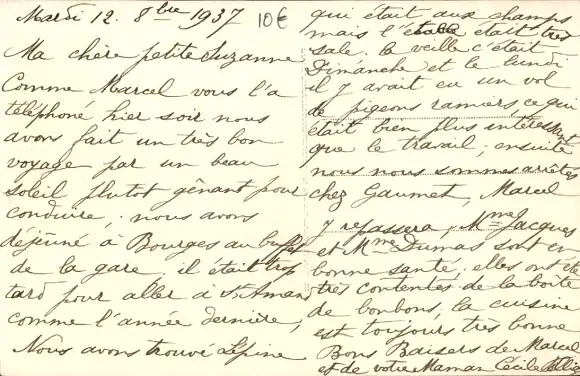 Mardi 12. 8bre 1937
10€
Ma chère petite Suzanne
Comme Marcel vous l'a
téléphoné hier soir nous
avons fait un très bon
voyage par un beau
soleil plutot gênant pour
conduire, nous avons
déjeûné à Bourges au buffet
de la gare, il était trop
tard pour aller à St Amand
comme l'année dernière,
Nous avons trouvé Lépine
qui était aux champs
mais l'étable était très
sale. la veille c'était
Dimanche et le lundi
il y avait eu un vol
de pigeons ramiers, ce qui
était bien plus intéressant
que le travail; ensuite
nous nous sommes arrêtés
chez Gaumet, Marcel
y repassera, Mme Jacques
et Mme Dumas sont en
bonne santé, elles ont été
très contentes de la boîte
de bonbons, la cuisine
est toujours très bonne
Bons Baisers de Marcel
et de votre Maman Cécile